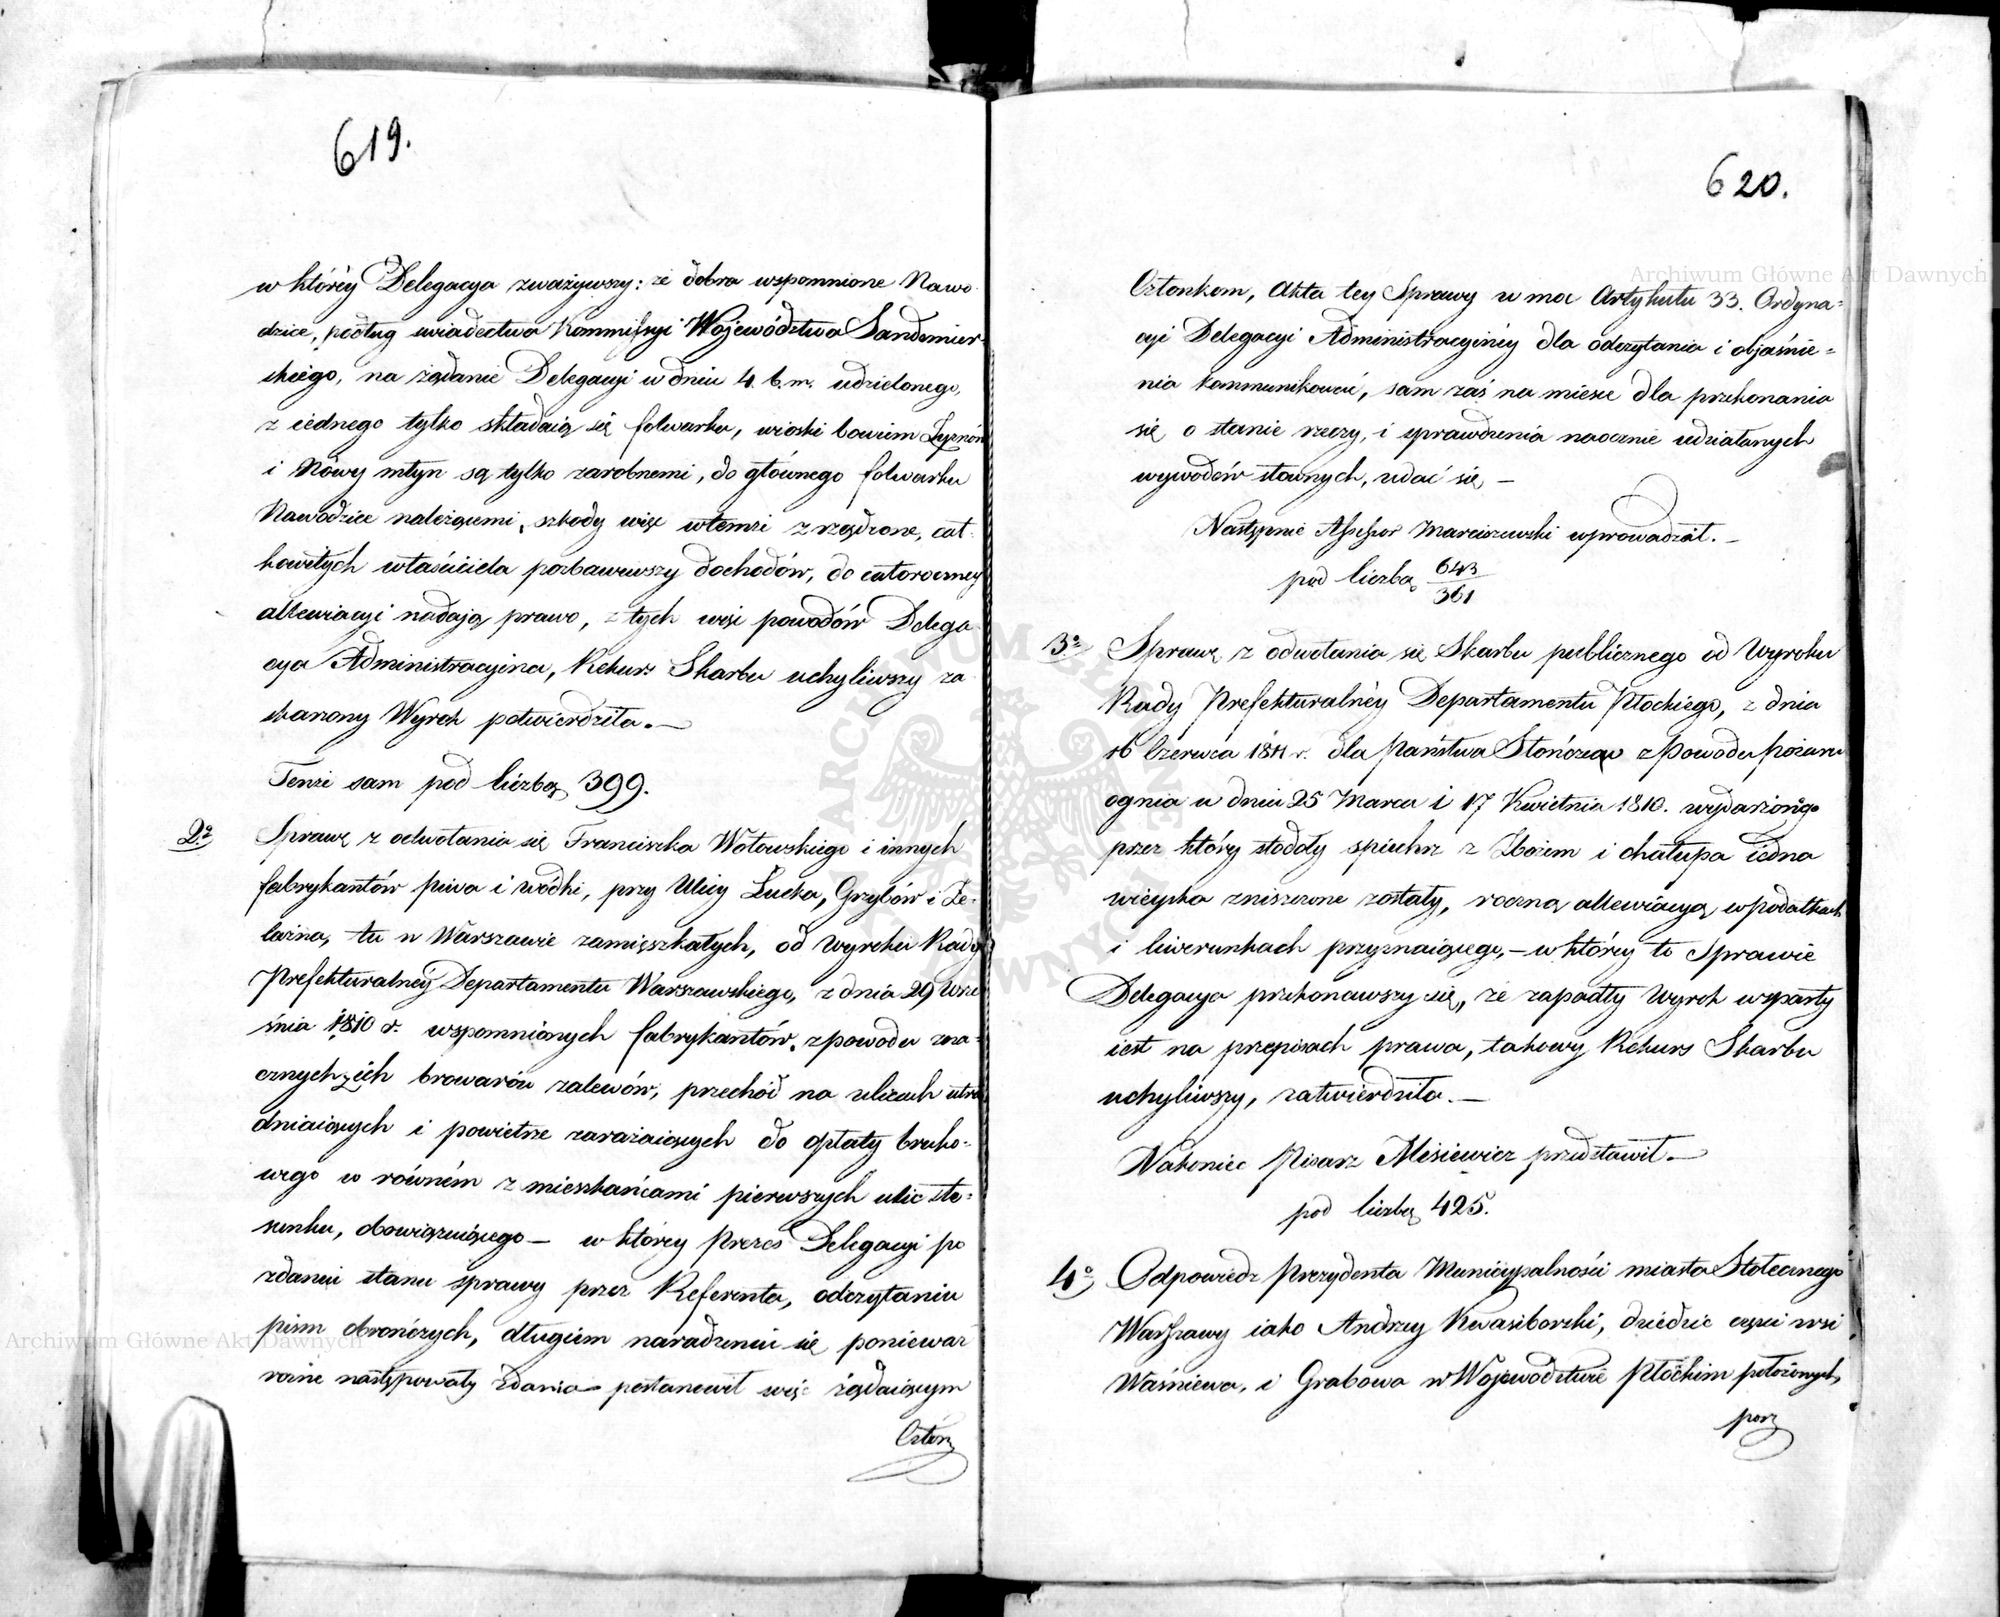 619.
w którey Delegacya zważywszy: że dobra wspomnione Nawo
dzice, podług uwiadectwa Kommissyi Województwa Sandomier
skiego, na żądanie Delegacyi w dniu 4. b. m. udzielonego,
z iednego tylko składaią się folwarku, wioski bowiem
i Nowy młyn są tylko zarobnemi, do głównego folwarku
Nawodzice należącemi, szkody więc w temże zrządzone, cał
kowitych właściciela pozbawiwszy dochodów, do całoroczney
allewiacyi nadają prawo, z tych więc powodów Delega
cya Administracyina, Rekurs Skarbu uchyliwszy za
skarżony Wyrok potwierdziła. —
Tenże sam pod liczbą 399.
2o Sprawę z odwołania się Franciszka Wołowskiego i innych
fabrykantów piwa i wódki, przy Ulicy Łucka, Grzybów i Że=
lazna, tu w Warszawie zamięszkałych, od wyroku Rady
Prefekturalnéy Departamentu Warszawskiego, z dnia 29 Wrze
śnia 1810 r. wspomnionych fabrykantów, z powodu zna=
cznych z ich browarów zalewów, przechód na ulicach utru
dniaiących i powietrze zarażaiących do opłaty bruko=
wego w równém z mieszkańcami pierwszych ulic sto=
sunku, obowiązuiącego — w którey Prezes Delegacyi po
zdaniu stanu sprawy przez Referenta, odczytaniu
pism obrończych, długiem naradzeniu się ponieważ
rożne następowały zdania — postanowił więc żądaiącym
Człon
620.
Członkom, Akta tey Sprawy w moc Artykułu 33. Ordyna=
cyi Delegacyi Administracyinéy dla odczytania i objaśnie=
nia kommunikować, sam zaś na miesce dla przekonania
się o stanie rzeczy, i sprawdzenia naocznie udziałanych
wywodów słownych, udać się —
Następnie Assessor Marciszewski wprowadził. —
pod liczbą 643/361
3o Sprawę z odwołania się Skarbu publicznego od Wyroku
Rady Prefekturalnéy Departamentu Płockiego, z dnia
16 Czerwca 1811 r. dla Państwa z powodu pożaru
ognia w dniu 25 Marca i 17 Kwietnia 1810. wydarzonego
przez który stodoły spichrz z Zbożem i chałupa iedna
wieyska zniszczone zostały, roczną allewiacyą w podatkach
i liwerunkach przyznaiącego, — w którey to Sprawie
Delegacya przekonawszy się, że zapadły Wyrok wsparty
iest na przepisach prawa, takowy Rekurs Skarbu
uchyliwszy, zatwierdziła. —
Nakoniec Pisarz Misiewicz przedstawił —
pod liczbą 425.
4o Odpowiedź Prezydenta Municypalności miasta Stołecznego
Warszawy iako Andrzey Kwasiborski, dziedzic części wsi
Waśniewa, i Grabowa w Województwie Płockim położonych,
porz
Archiwum Główne Akt Dawnych
Archiwum Główne Akt Dawnych